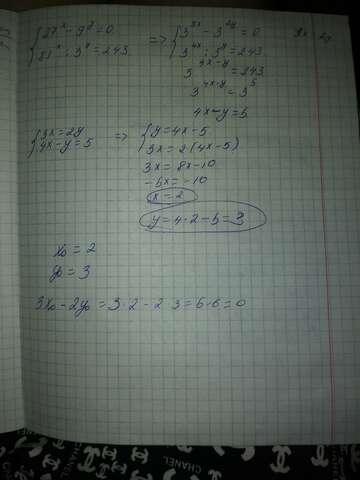 {27ˣ - 9ʸ = 0 => {3³ˣ - 3²ʸ = 0 3x 2y
{81ˣ : 3ʸ = 243 {3⁴ˣ : 3ʸ = 243
3⁴ˣ⁻ʸ = 243
3⁴ˣ⁻ʸ = 3⁵
4x-y=5
{3x=2y => {y=4x-5
{4x-y=5 {3x=2(4x-5)
3x=8x-10
-5x=-10
x=2
y=4·2-5=3
x₀ = 2
y₀ = 3
3x₀-2y₀=3·2-2·3=6-6=0
CHANEL
CHANEL